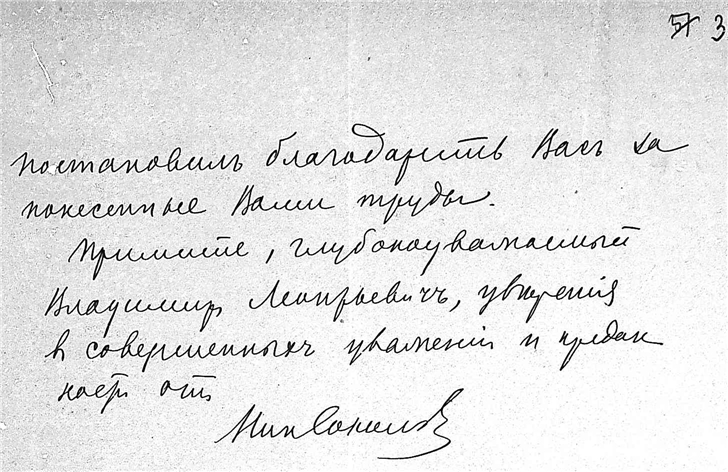 3
постановилъ благодарить Васъ за
понесенные Вами труды.
Примите, глубокоуважаемый
Владимиръ Леонтьевичъ, увѣренія
в совершенныхъ уваженіи и предан
ности отъ